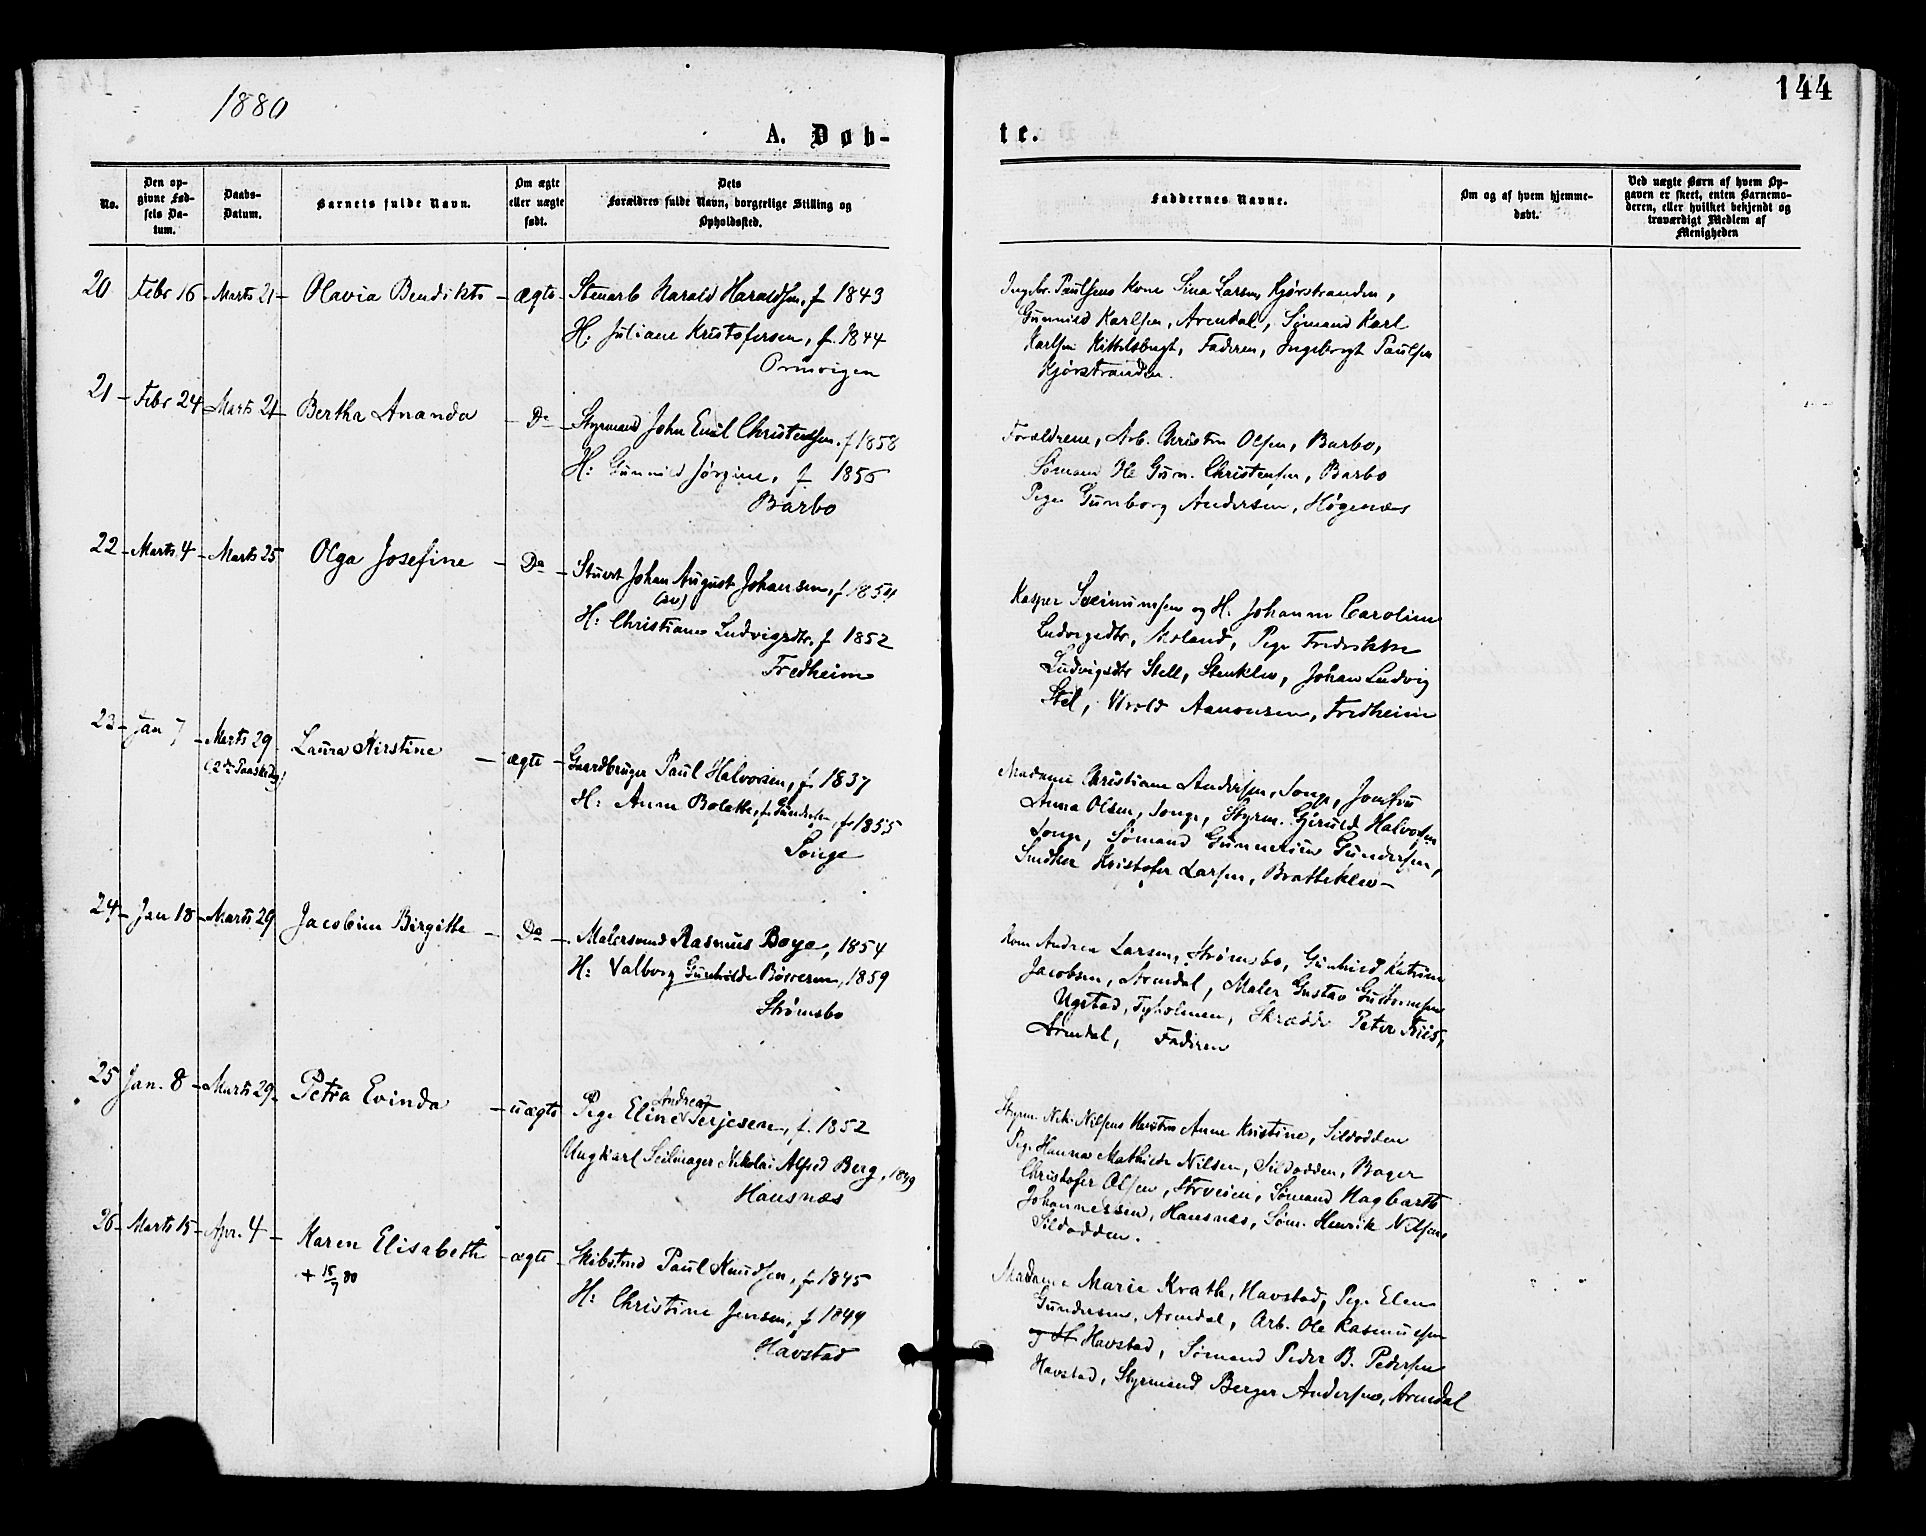 144
1880
A. Døb-
te.
No.
Den op-
givne Fød-
sels Da-
tum.
Daabs-
Datum.
Barnets fulde Navn.
Om ægte
eller uægte
født.
Dets
Forældres fulde Navn, borgerlige Stilling og
Opholdssted.
Faddernes Navne.
Om og af hvem hjemme-
døbt.
Ved uægte Børn af hvem Op-
gaven er skeet, enten Barnemo-
deren, eller hvilket bekjendt og
troværdigt Medlem af
Menigheden
20 Febr 16 - Marts 21 - Olavia Bendikte - ægte
Stenarb Harald Haraldsen, f 1843
H: Juliane Kristofersen, f. 1844
Paulsens Kone Sina Larsen, Kjørstranden,
Gunnild Karlsen, Arendal, Sømand Karl
Karlsen Kittelsbugt, Faderen, Ingeborgt Paulsen
Kjørstranden.
21 - Febr 24 - Marts 21 - Bertha Ananda - Do
Styrmand John Emil Christensen, f 1858
H: Gunnild Jørgine, f 1856
Barbo
Forældrene, Arb. Christen Olsen, Barbo,
Sømand Ole Gun. Christensen, Barbo
Pige Gunborg Andersen, Høgenæs
22 - Marts 4 - Marts 25 Olga Josefine - Do
Stuert Johan August Johansen, f 1854
H: Christiane Ludvigsdtr, f 1852
Fredheim
Kasper og H. Johanne Caroline
Ludvigsdtr, Moland, Pige Fredrikke
Ludvigsdtr Stell, Stenklev, Johan Ludvig
Stel, Aanonsen, Fredheim
23 - Jan 7 - Marts 29 Laura Kirstine - ægte
(2den Paaskedag)
Gaardbruger Paul Halvorsen, f. 1837
H: Anne Bolette, f. Gundersen, f 1855
Songe
Madame Christiane Andersen, Songe, Jomfru
Anna Olsen, Songe, Styrm. Gjeruld Halvorsen
Songe, Sømand Gunnerius Gundersen,
Snedker Kristofer Larsen, Bratteklev -
24 - Jan 18 - Marts 29 Jacobine Birgitte - Do
Malersvend Rasmus Boye, 1854
H: Valborg Gunhilde, 1859
Strømsbo
Kone Andrea Larsen, Strømsbo, Gunhild Katrine
Jacobsen, Arendal, Maler Gustav
Ugstad, Tyholmen, Skrædder Peter Friis,
Arendal, Faderen
25 Jan. 8 - Marts 29 - Petra Evinda - uægte
Andrea
Pige Eline Terjesen, f. 1852
Ungkarl Seilmager Nikolai Alfred Berg, 1849
Hausnæs
Styrm. Nik. Nilsens Hustru Anne Kristine, Sildodden
Pige Hanna Mathilde Nilsen, Sildodden, Bager
Christofer Olsen, Sømand Hagbarth
Johannessen, Hausnæs, Søm. Henrik Nilsen
Sildodden.
26 - Marts 15 - Apr. 4 - Karen Elisabeth - ægte
+ 15/7 80
Skibstmd Paul Knudsen, f. 1845
H: Christine Jensen, f 1849
Havstad
Madame Marie Krath, Havstad, Pige Elen
Gundersen, Arendal, Arb. Ole Rasmussen
og H Havstad, Sømand Peder B. Pedersen
Havstad, Styrmand Berger Andersen, Arendal